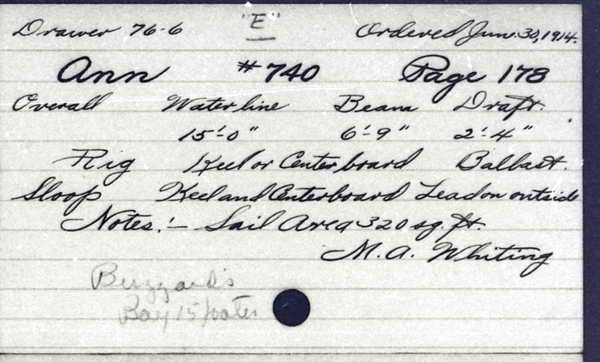 Drawer 76-6 "E" Ordered Jun. 30, 1914.
Ann #740 Page 178
Overall Waterline Beam Draft.
15'-0" 6'-9" 2'-4"
Rig Keel or Centerboard Ballast.
Sloop Keel and Centerboard Lead on outside
Notes:- Sail Area 320 sq. ft.
M.A. Whiting
Buzzard's
Bay 15 footer